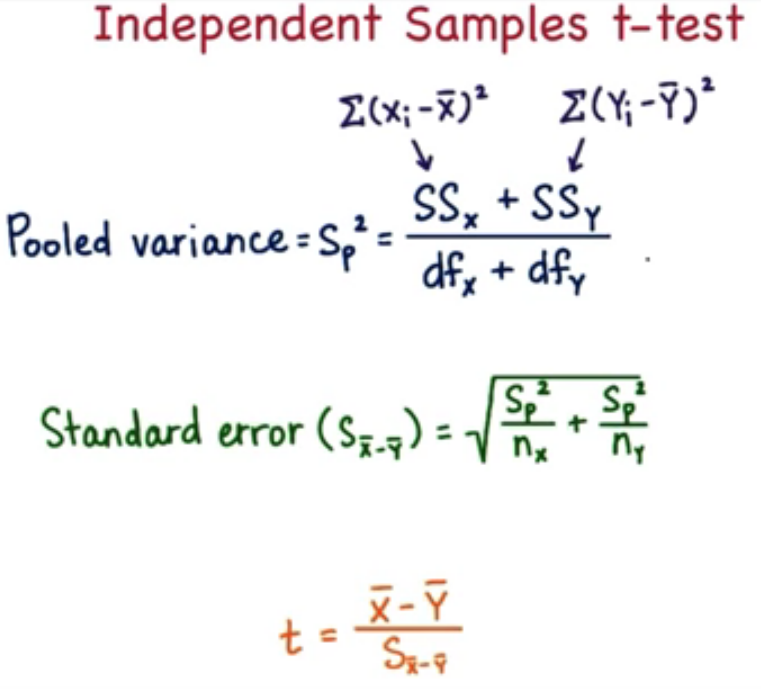 Independent Samples t-test
Σ(xᵢ-x̄)² Σ(Yᵢ-Ȳ)²
Pooled variance = Sₚ² = (SSₓ + SSᵧ) / (dfₓ + dfᵧ)
Standard error (S_x̄-Ȳ) = √(Sₚ²/nₓ + Sₚ²/nᵧ)
t = (x̄ - Ȳ) / S_x̄-Ȳ